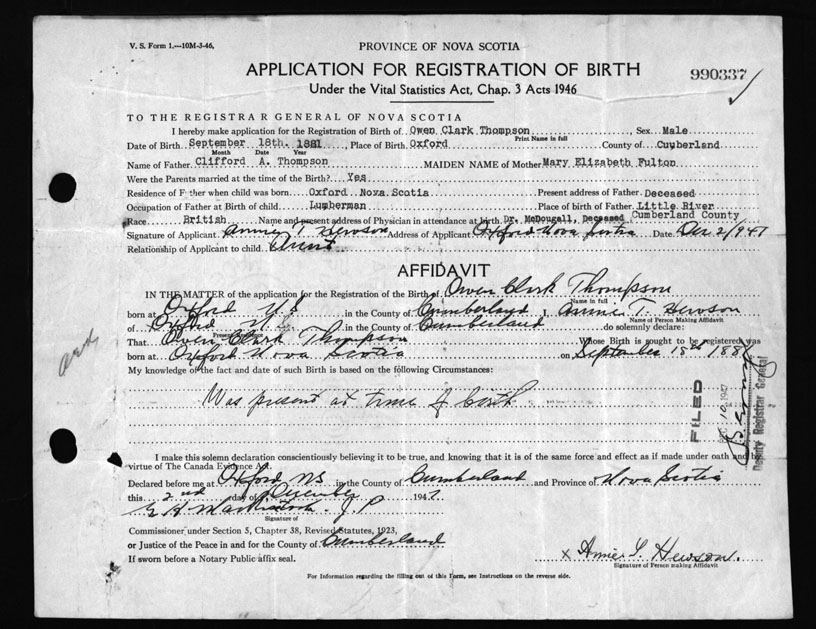 V. S. Form 1.—10M-3-46,
PROVINCE OF NOVA SCOTIA
APPLICATION FOR REGISTRATION OF BIRTH
990337
Under the Vital Statistics Act, Chap. 3 Acts 1946
TO THE REGISTRAR GENERAL OF NOVA SCOTIA
I hereby make application for the Registration of Birth of Owen Clark Thompson, Sex Male
Print Name in full
Date of Birth September 18th. 1881, Place of Birth Oxford County of Cumberland
Month Date Year
Name of Father Clifford A. Thompson MAIDEN NAME of Mother Mary Elizabeth Fulton
Were the Parents married at the time of the Birth? Yes
Residence of Father when child was born Oxford Nova Scotia Present address of Father Deceased
Occupation of Father at Birth of child Lumberman Place of birth of Father Little River
Cumberland County
Race British Name and present address of Physician in attendance at birth Dr. McDougall, Deceased
Signature of Applicant Annie T Hewson Address of Applicant Oxford Nova Scotia Date Dec 2/1947
Relationship of Applicant to child Aunt
AFFIDAVIT
IN THE MATTER of the application for the Registration of the Birth of Owen Clark Thompson
Name in full
born at Oxford N.S in the County of Cumberland I, Annie T. Hewson
Name of Person Making Affidavit
of Oxford N.S in the County of Cumberland do solemnly declare:
That Owen Clark Thompson Whose Birth is sought to be registered was
born at Oxford Nova Scotia on September 18th 1881
My knowledge of the fact and date of such Birth is based on the following Circumstances:
Was present at time of birth
FILED
10 1947
Deputy Registrar General
I make this solemn declaration conscientiously believing it to be true, and knowing that it is of the same force and effect as if made under oath and by
virtue of The Canada Evidence Act.
Declared before me at Oxford NS in the County of Cumberland and Province of Nova Scotia
this 2nd day of December 1947
J. P
Signature of
Commissioner under Section 5, Chapter 38, Revised Statutes, 1923,
or Justice of the Peace in and for the County of Cumberland
If sworn before a Notary Public affix seal.
x Annie T. Hewson.
Signature of Person making Affidavit
For Information regarding the filling out of this Form, see Instructions on the reverse side.